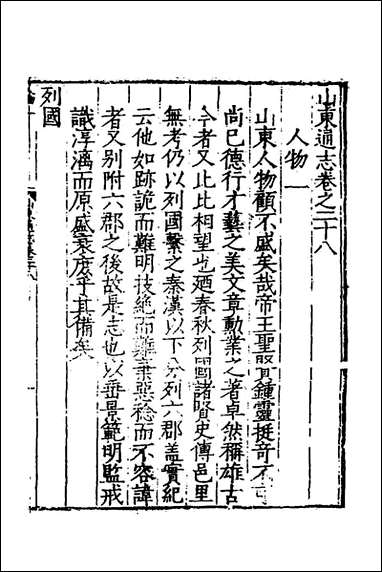 山東通志卷之二十八
人物一
山東人物顧不盛矣哉帝王聖賢鍾靈挺奇不可
尚已德行才藝之美文章勳業之著卓然稱雄古
今者又比比相望也廼春秋列國諸賢史傳邑里
無考仍以列國繫之秦漢以下分列六郡蓋實紀
云他如跡詭而難明技絕而難棄惡稔而不容諱
者又別附六郡之後故是志也以垂景範明監戒
識淳漓而原盛衰庶乎其備矣
列國